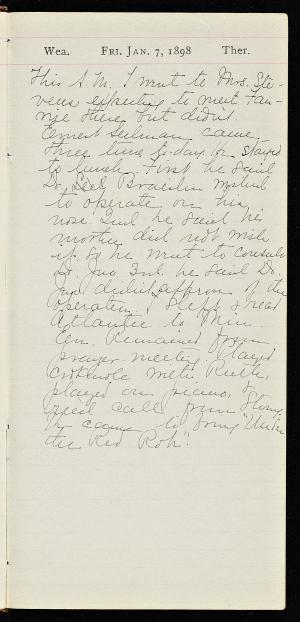 Wea. FRI. JAN. 7, 1898 Ther.
This A.M. I went to Mrs. Ste-
vens expecting to meet Fan-
nie there but didn't.
Ernest came
three times to-day & stayed
to lunch. First he said
Dr. wished
to operate on his
nose 2nd he said his
mother did not wish
it so he went to consult
Dr. Jno. 3rd. he said Dr.
Jno didn't approve of the
operation. I slept & read
Atlantic to
Eve. Remained from
prayer-meeting. Played
with Ruth,
played on piano, &
rec'd call from
who came to bring "Under
the Red Rob".